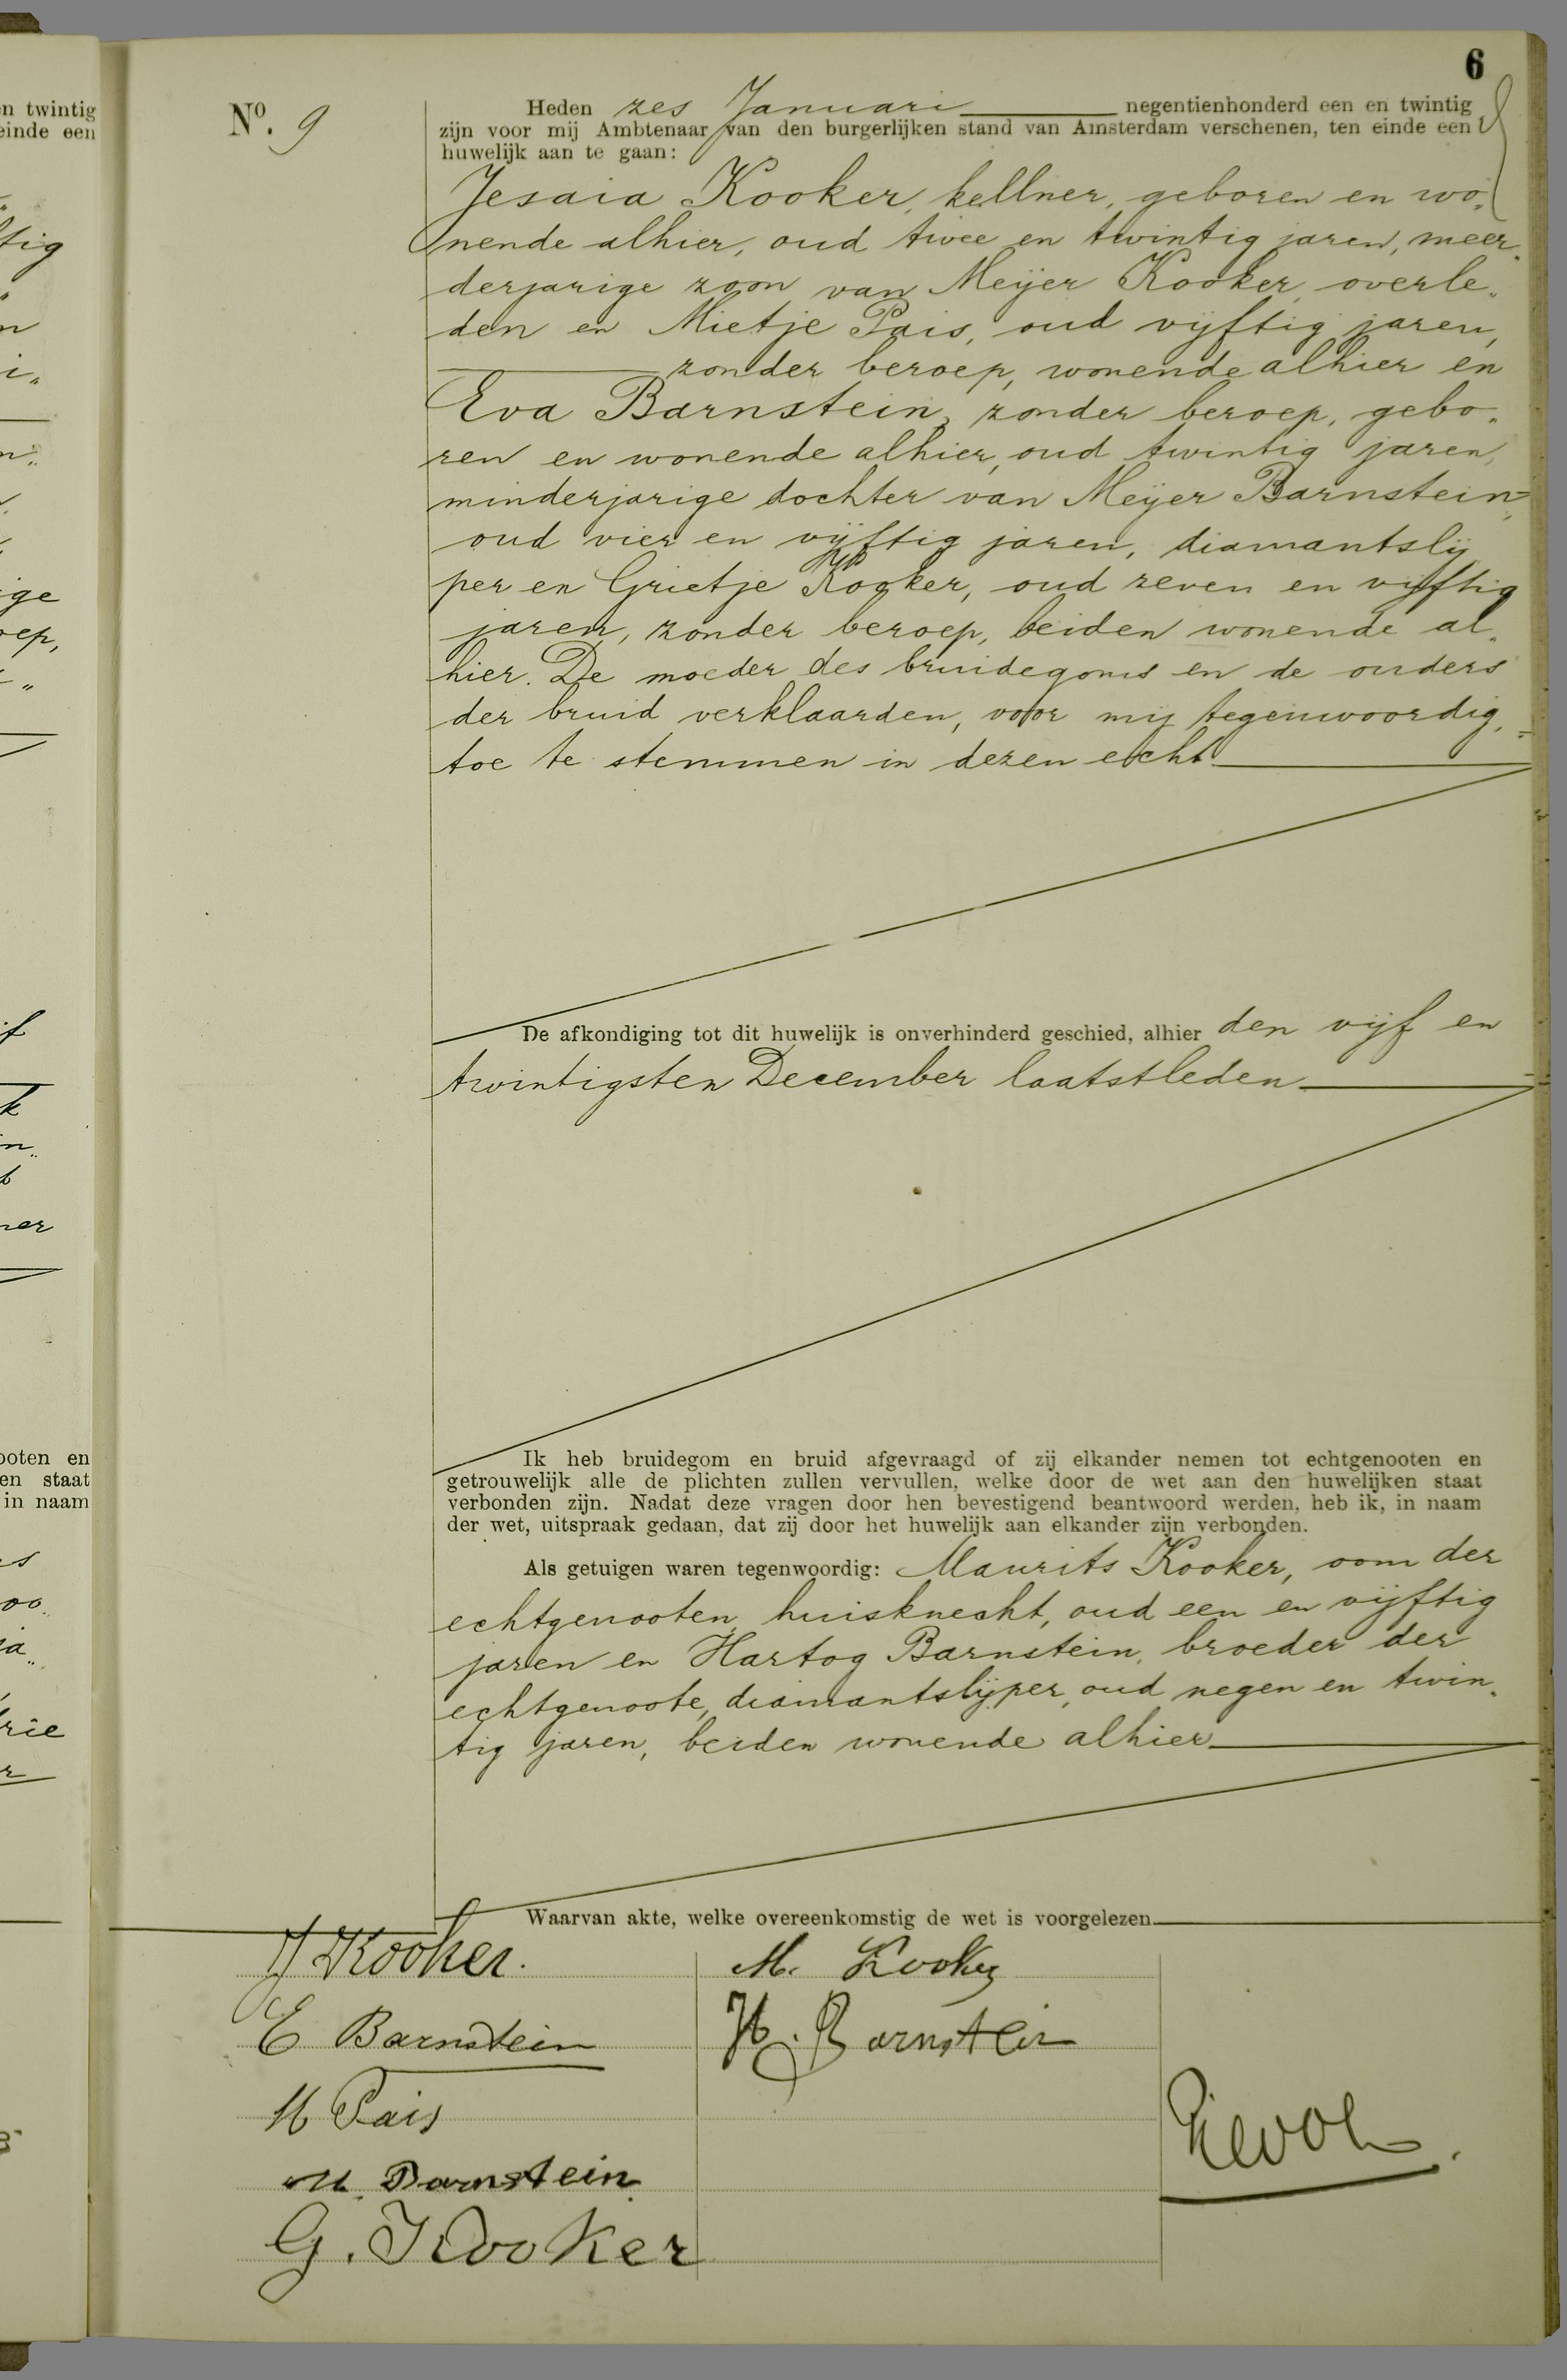 6
N⁰. 9
Heden zes Januari negentienhonderd een en twintig
zijn voor mij Ambtenaar van den burgerlijken stand van Amsterdam verschenen, ten einde een
huwelijk aan te gaan:
Jesaia Kooker, kellner, geboren en wo„
nende alhier, oud twee en twintig jaren, meer„
derjarige zoon van Meijer Kooker, overle„
den en Mietje Pais, oud vijftig jaren,
zonder beroep, wonende alhier en
Eva Barnstein, zonder beroep, gebo„
ren en wonende alhier, oud twintig jaren,
minderjarige dochter van Meijer Barnstein,
oud vier en vijftig jaren, diamantslij
per en Grietje Kooker, oud zeven en vijftig
jaren, zonder beroep, beiden wonende al„
hier. De moeder des bruidegoms en de ouders
der bruid verklaarden, voor mij tegenwoordig,
toe te stemmen in dezen echt
De afkondiging tot dit huwelijk is onverhinderd geschied, alhier den vijf en
twintigsten December laatstleden
Ik heb bruidegom en bruid afgevraagd of zij elkander nemen tot echtgenooten en
getrouwelijk alle de plichten zullen vervullen, welke door de wet aan den huwelijken staat
verbonden zijn. Nadat deze vragen door hen bevestigend beantwoord werden, heb ik, in naam
der wet, uitspraak gedaan, dat zij door het huwelijk aan elkander zijn verbonden.
Als getuigen waren tegenwoordig: Maurits Kooker, oom der
echtgenooten, huisknecht, oud een en vijftig
jaren en Hartog Barnstein, broeder der
echtgenoote, diamantslijper, oud negen en twin„
tig jaren, beiden wonende alhier
Waarvan akte, welke overeenkomstig de wet is voorgelezen
J Kooker.
E Barnstein
M Pais
M. Barnstein
G. Kooker
M. Kooker
H. Barnstein